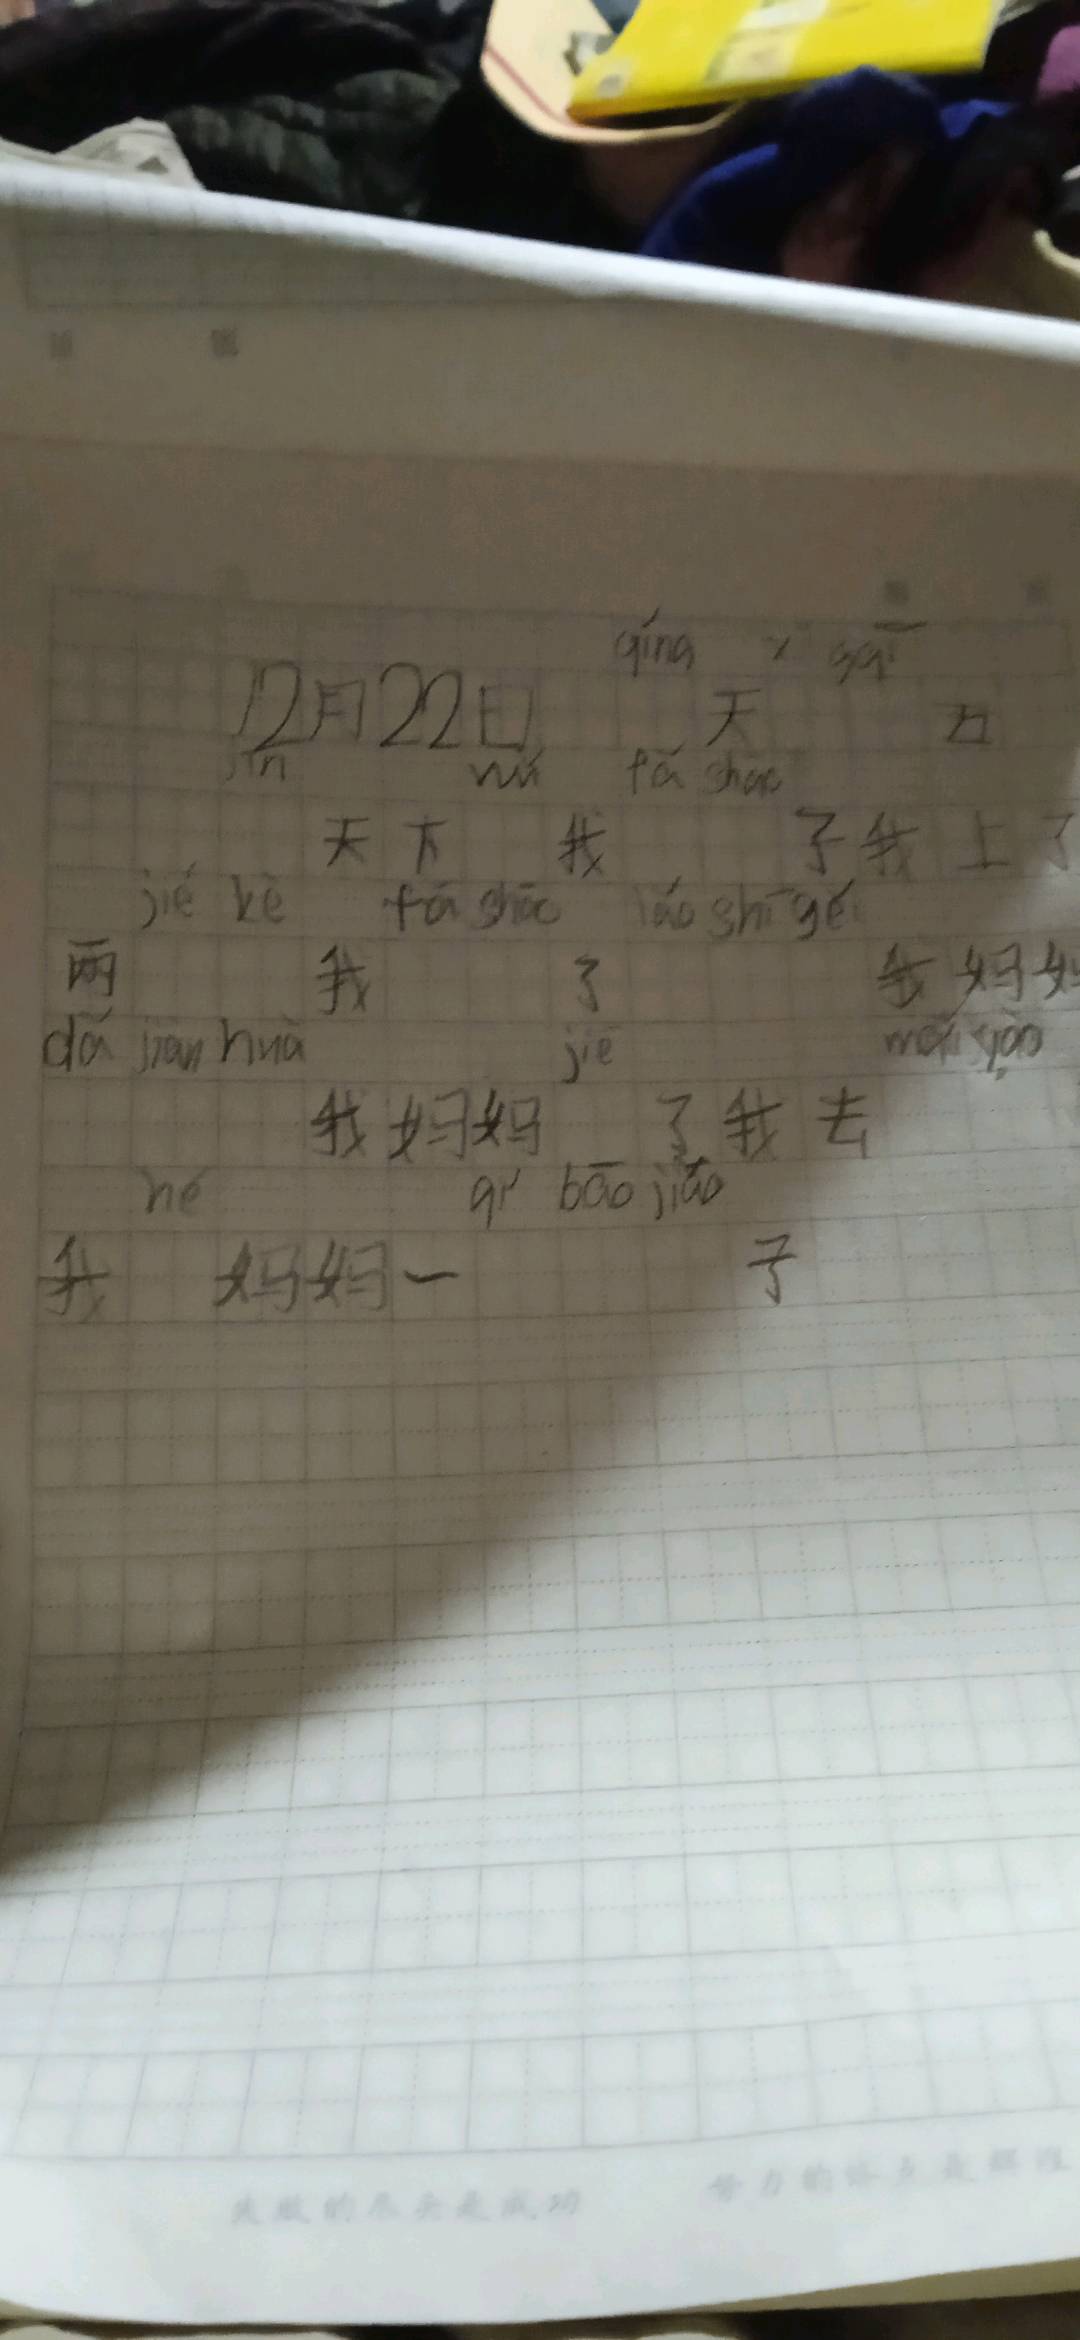 qíng
12月22日 天 五
jīn wǔ fā shāo
天下 我 了我上了
jié kè fā shāo lǎo shī gěi
两 我 了 我妈妈
dǎ jiàn huà jiē
我妈妈 了我去
hé qí bāo jiǎo
我 妈妈一 子
失败的尽头是成功